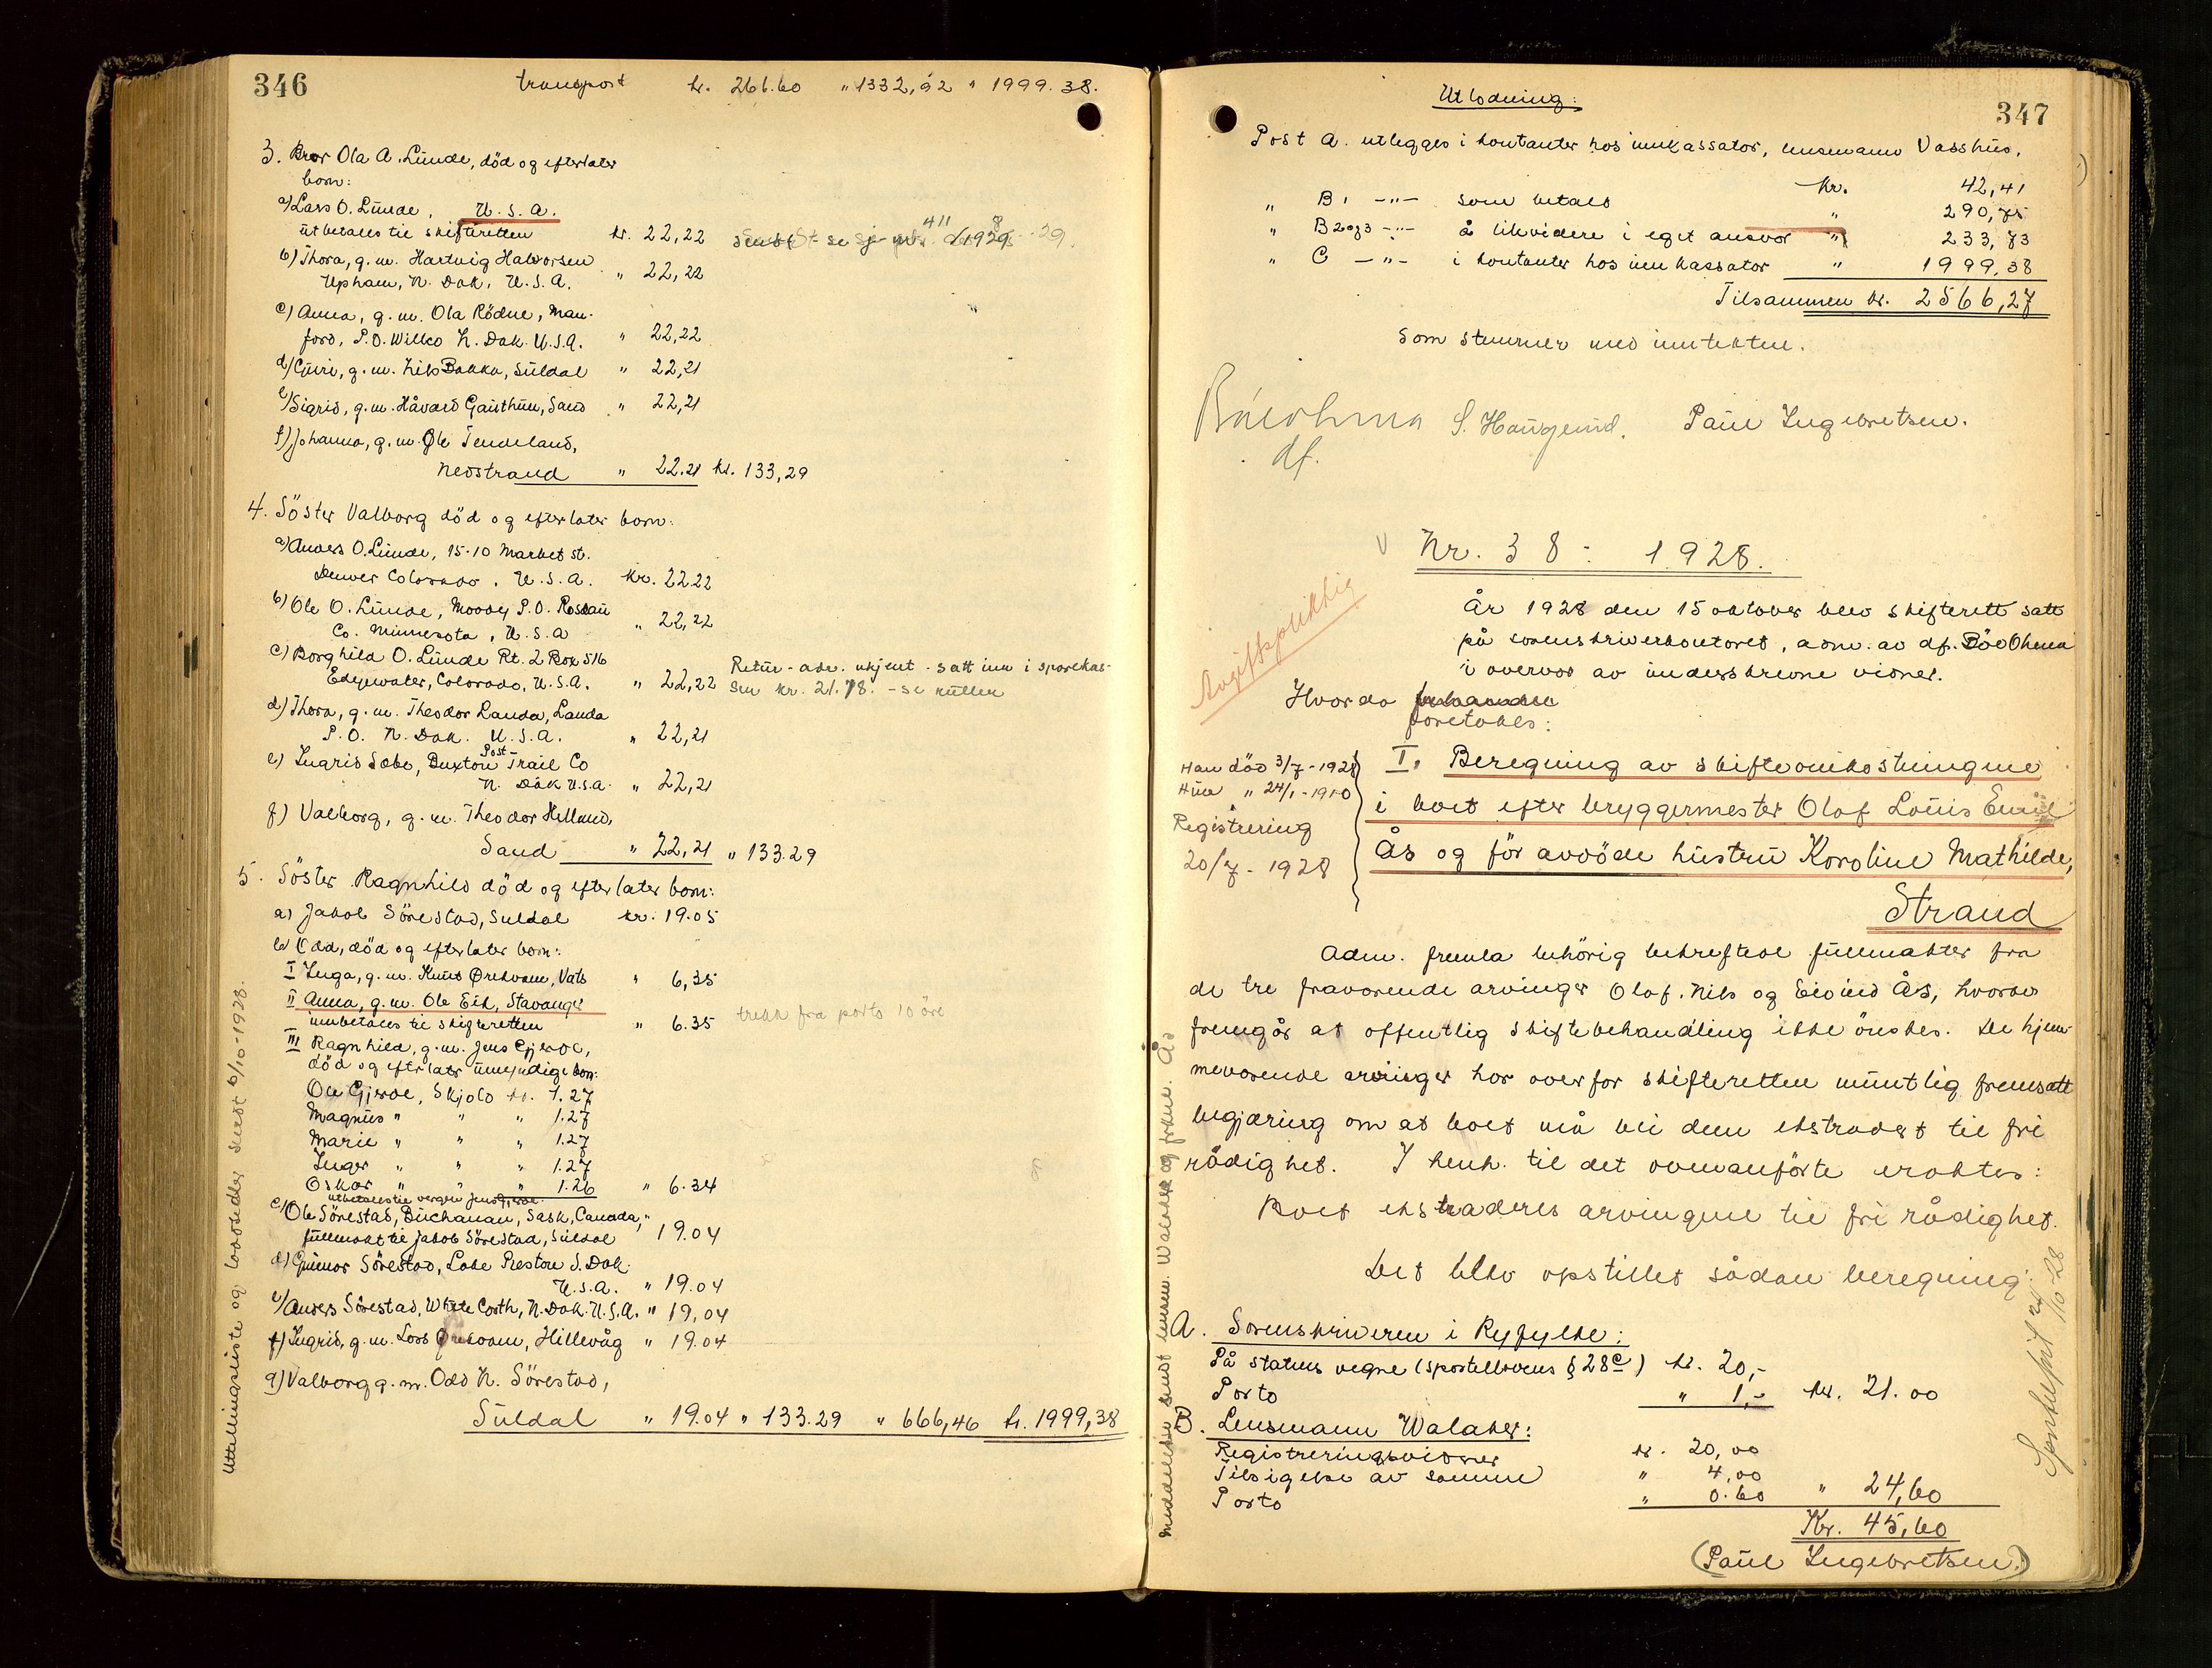 346
transport kr. 266.60 " 1332,92 " 1999.38.
3. Bror Ola A. Lunde, död og efterlater
born:
a) Lars O. Lunde, U.S.A.
utbetales til skifteretten kr. 22,22
b) Thora, g.m. Hartvig Halvorsen
Upham, N. Dak. U.S.A. " 22,22
c) Anna, g.m. Ola Rödne, Man-
ford, P.O. Willco N. Dak. U.S.A. " 22,22
d) Guri, g.m. Nils Bakka, Suldal " 22,21
e) Sigrid, g.m. Håvard Gauthun, Sand " 22,21
f) Johanna, g.m. Ole Tenneland,
Nedstrand " 22.21 kr. 133,29
4. Söster Valborg död og efterlater born:
a) Anders O. Lunde, 15-10 Market st.
Denver Colorado. U.S.A. kr. 22.22
b) Ole O. Lunde, Moody P.O. Roseau
Co. Minnesota, U.S.A " 22,22
c) Borghild O. Lunde Rt. 2 Box 516
Edgewater, Colorado, U.S.A. " 22,22 Retur - adr. ukjent - satt inn i sparekas-
sen kr. 21.78. - se nullen
d) Thora, g.m. Theodor Landa, Landa
P.O. N. Dak. U.S.A. " 22,21
e) Ingrid Sæbe, Buxton Post Trail Co
N. Dak U.S.A. " 22,21
f) Valborg, g.m. Theodor Helland,
Sand " 22,21 " 133.29
5. Söster Ragnhild död og efterlater born:
a) Jakob Sörestad, Suldal kr. 19.05
b) Odd, död og efterlater born:
I Inga, g.m. Knut Ørekvam, Vats " 6,35
II Anna, g.m. Ole Eik, Stavanger
innbetales til skifteretten " 6.35 trekk fra porto 10 öre
III Ragnhild, g.m. Jens Gjerde,
död og efterlater umyndige born:
Ole Gjerde, Skjold kr. 1.27
Magnus " " " 1.27
Marie " " " 1.27
Inger " " " 1.27
Oskar " " " 1.26 " 6.34
utbetales til vergen Jens Gjerde.
c) Ole Sörestad, Buchanan, Sask, Canada,
fullmakt til Jakob Sörestad, Suldal " 19.04
d) Gunnar Sörestad, Lake Preston S. Dak.
U.S.A. " 19.04
e) Anders Sörestad, White Corth, N. Dak. U.S.A. " 19,04
f) Ingrid, g.m. Lars Ørekvam, Hillevåg " 19.04
g) Valborg g.m. Odd N. Sörestad,
Suldal " 19.04 " 133.29 " 666,46 kr. 1999,38
Uttellingsliste og loddsedler sendt 6/10-1928.
347
Utlodning:
Post A. utlegges i kontanter hos innkassator, lensmann Vasshus,
kr. 42,41
" B 1 -"- som betalt " 290,75
" B 2 og 3 -"- å likvidere i eget ansvar " 233,73
" C -"- i kontanter hos innkassator " 1999,38
Tilsammen kr. 2566,27
som stemmer med inntekten.
Böe Ohma S. Haugeund. Paul Ingebretsen.
df.
Nr. 38 - 1928.
Avgiftspliktig
År 1928 den 15 oktober blev skifterett satt
på sorenskriverkontoret, adm. av df. Böe Ohma
i overvær av underskrevne vidner.
Hvorda forhandles
foretokes:
Han död 3/7-1928
Hun " 24/1-1910
Registrering
20/7-1928
I. Beregning av skifteomkostningene
i boet efter bryggermester Olaf Louis Emil
Ås og før avdöde hustru Karoline Mathilde,
Strand
Adm. fremla behörig bekreftede fullmakter fra
de tre fraværende arvinger Olaf, Nils og Eivind Ås, hvorav
fremgår at offentlig skiftebehandling ikke önskes. De hjem-
meværende arvinger har overfor skifteretten muntlig fremsatt
begjæring om at boet må bli dem ekstradert til fri
rådighet. I henh. til det ovenanförte eraktes:
Boet ekstraderes arvingene til fri rådighet.
Det blev opstillet sådan beregning:
A. Sorenskriveren i Ryfylke:
På statens vegne (sportellovens § 28 c) kr. 20,-
Porto " 1,- kr. 21.00
B. Lensmann Walaker:
Registreringsvidner kr. 20,00
Tilsigelse av samme " 4,00
Porto " 0.60 " 24,60
Kr. 45,60
(Paul Ingebretsen.)